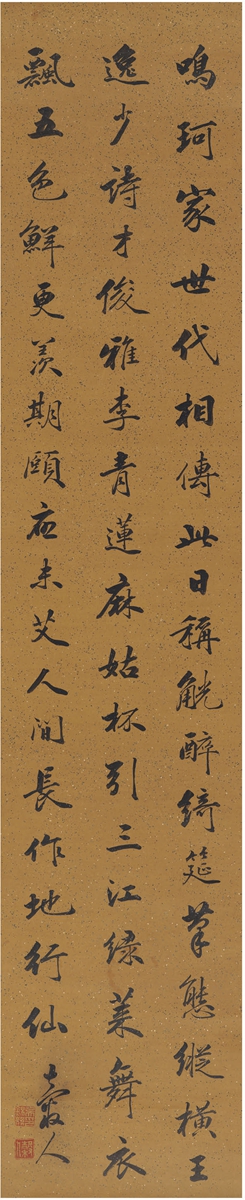 鳴珂家世代相傳此日稱觥醉綺筵筆態縱橫王
逸少詩才俊雅李青蓮麻姑杯引三江綠萊舞衣
飄五色鮮更羨期頤應未艾人間長作地行仙